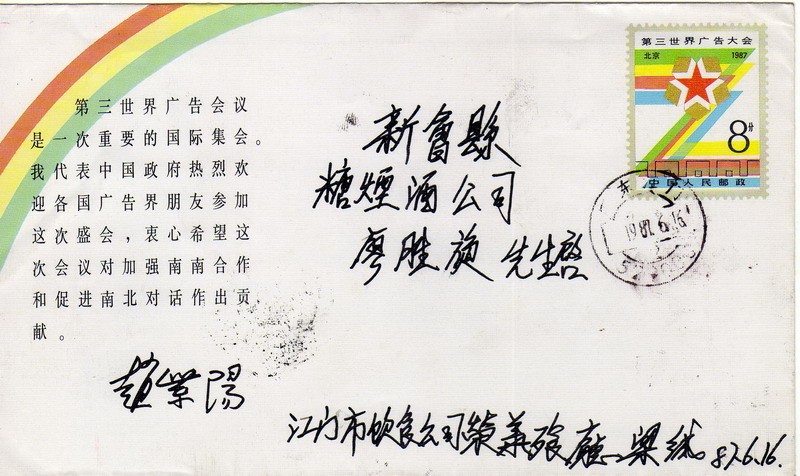 第三世界广告大会
北京 1987
8分
中国人民邮政
1987.6.16
第三世界广告会议
是一次重要的国际集会。
我代表中国政府热烈欢
迎各国广告界朋友参加
这次盛会，衷心希望这
次会议对加强南南合作
和促进南北对话作出贡
献。
赵紫陽
新會縣
糖煙酒公司
廖胜 先生啓
江门市饮食公司 梁 87.6.16.